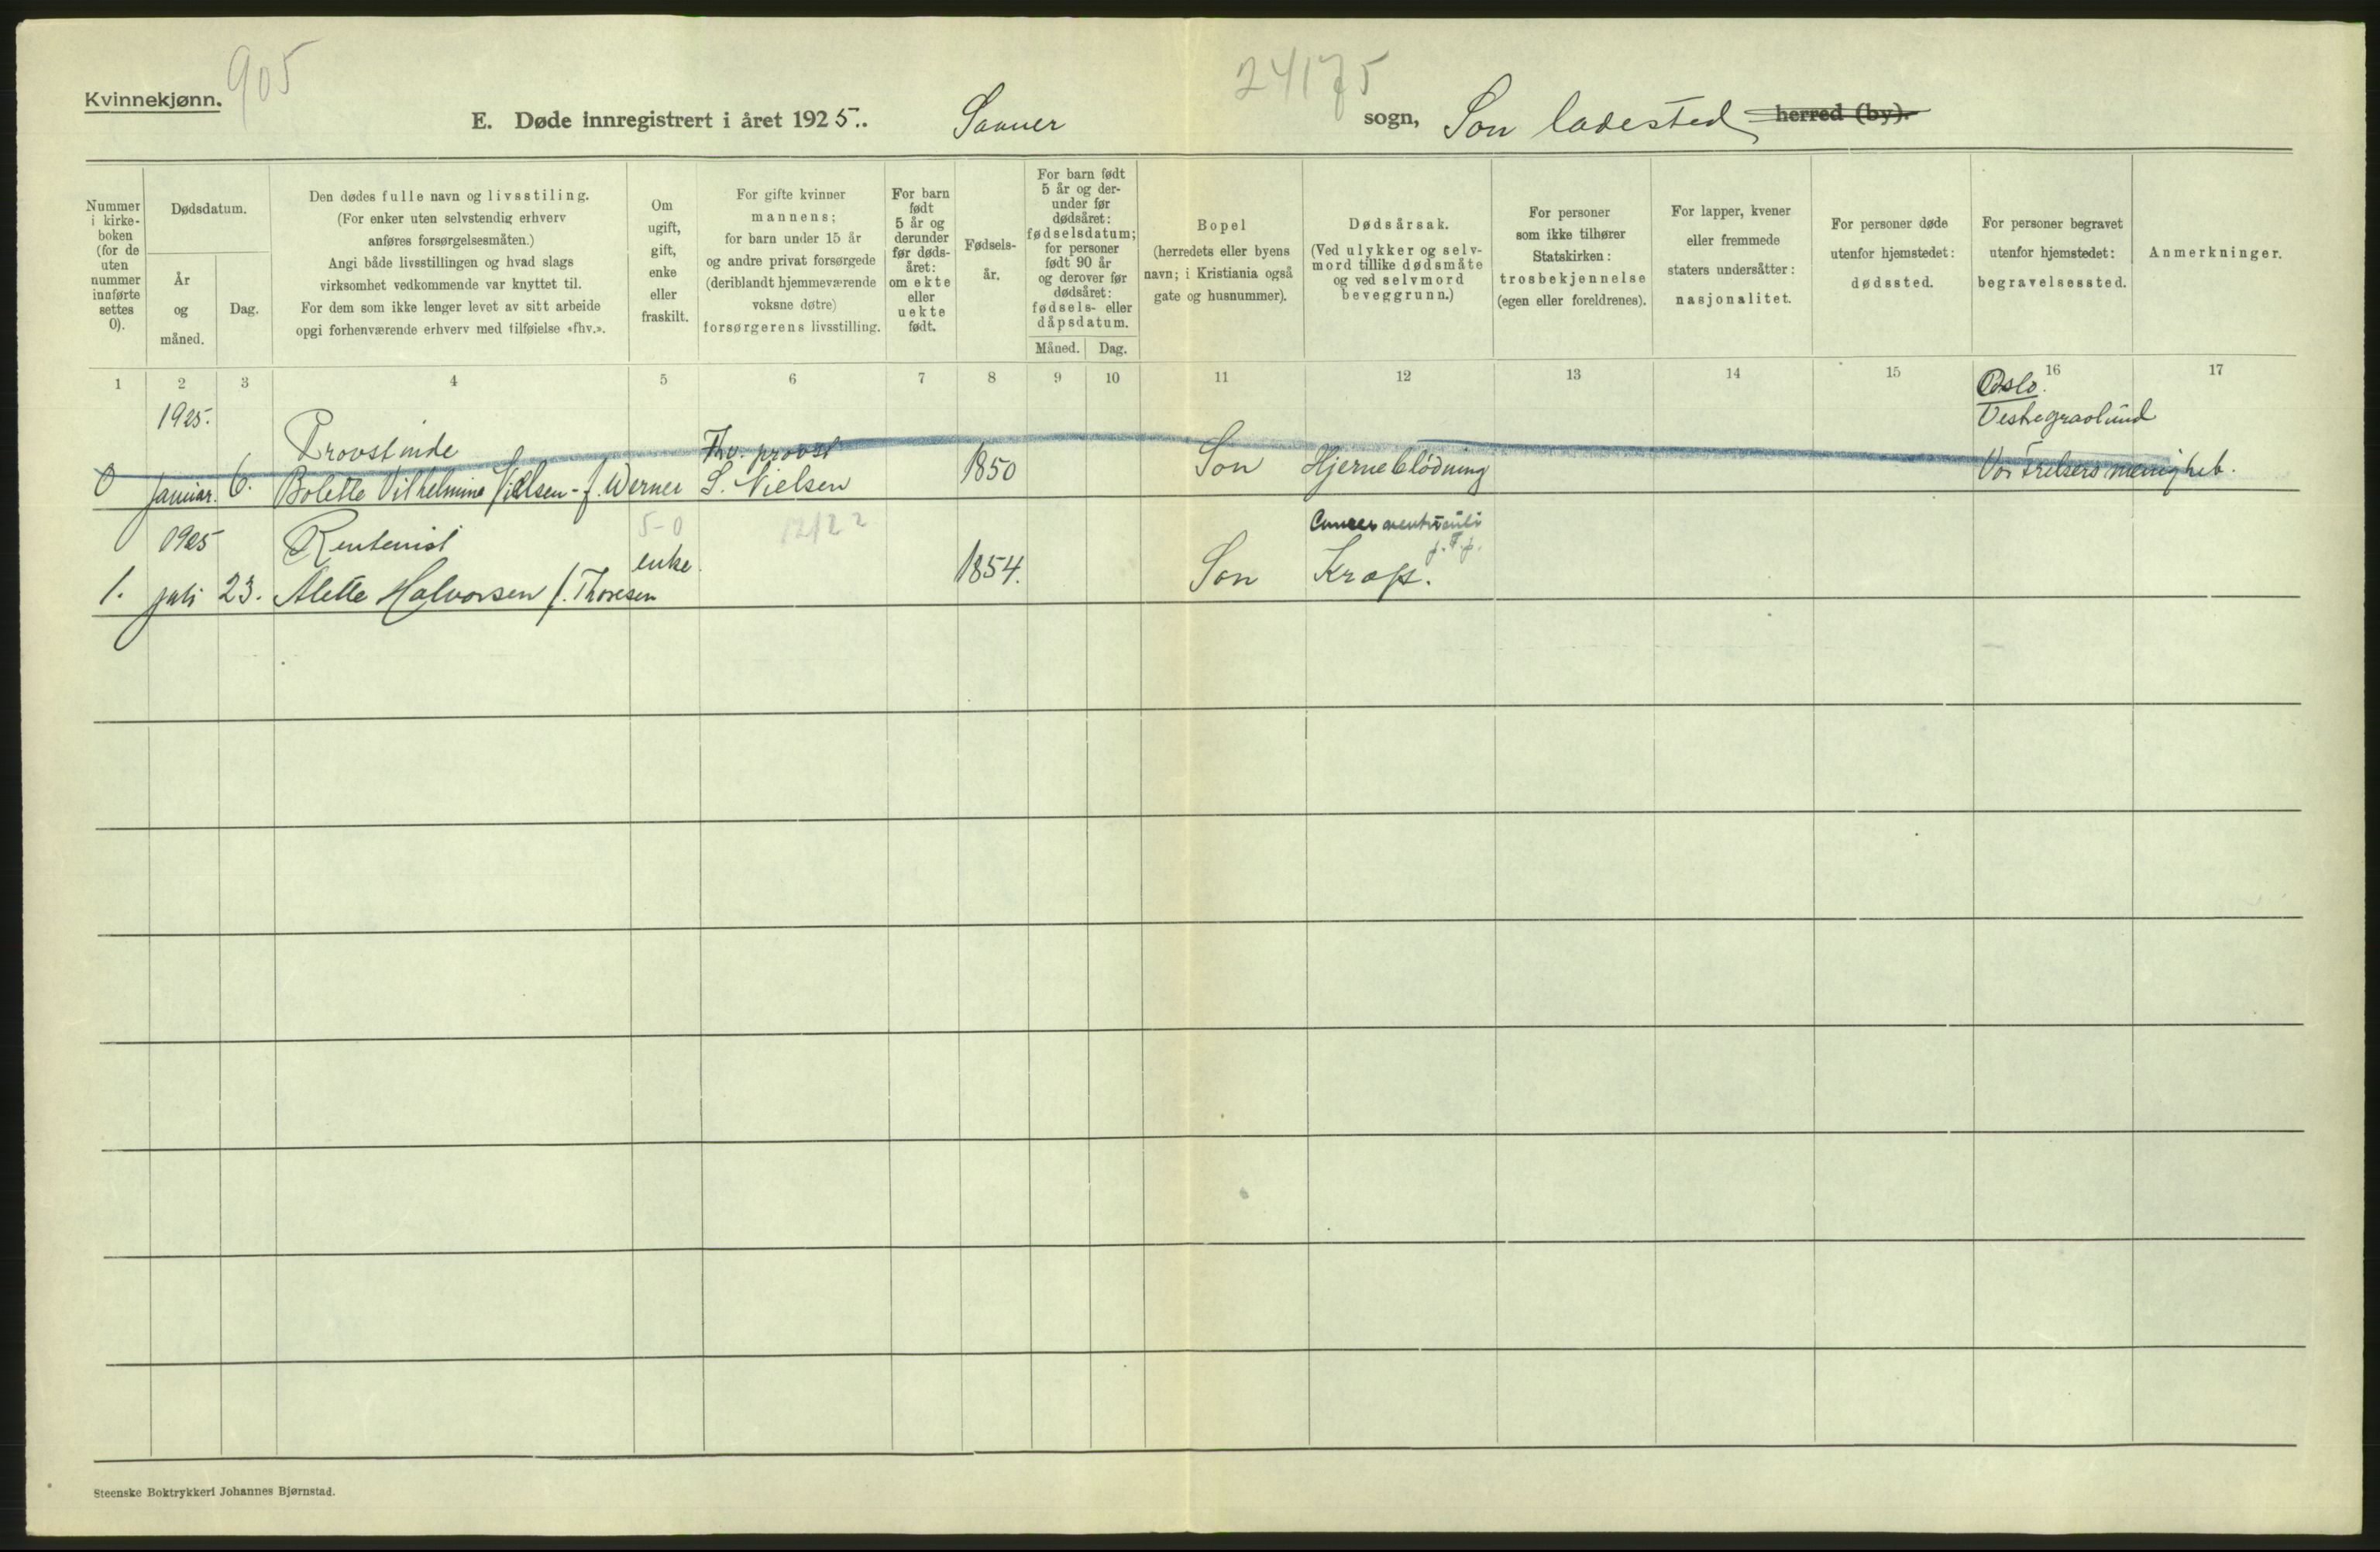 Kvinnekjønn.
905
24175
E. Døde innregistrert i året 1925.. Saaner sogn, Son ladested herred (by).
Nummer
i kirke-
boken
(for de
uten
nummer
innførte
settes
0).
Dødsdatum.
År
og
måned.
Dag.
Den dødes fulle navn og livsstiling.
(For enker uten selvstendig erhverv
anføres forsørgelsesmåten.)
Angi både livsstillingen og hvad slags
virksomhet vedkommende var knyttet til.
For dem som ikke lenger levet av sitt arbeide
opgi forhenværende erhverv med tilføielse «fhv.».
Om
ugift,
gift,
enke
eller
fraskilt.
For gifte kvinner
mannens;
for barn under 15 år
og andre privat forsørgede
(deriblandt hjemmeværende
voksne døtre)
forsørgerens livsstilling.
For barn
født
5 år og
derunder
før døds-
året:
om ekte
eller
uekte
født.
Fødsels-
år.
For barn født
5 år og der-
under før
dødsåret:
fødselsdatum;
for personer
født 90 år
og derover før
dødsåret:
fødsels- eller
dåpsdatum.
Måned. Dag.
Bopel
(herredets eller byens
navn; i Kristiania også
gate og husnummer).
Dødsårsak.
(Ved ulykker og selv-
mord tillike dødsmåte
og ved selvmord
beveggrunn.)
For personer
som ikke tilhører
Statskirken:
trosbekjennelse
(egen eller foreldrenes).
For lapper, kvener
eller fremmede
staters undersåtter:
nasjonalitet.
For personer døde
utenfor hjemstedet:
dødssted.
For personer begravet
utenfor hjemstedet:
begravelsessted.
Anmerkninger.
1 2 3 4 5 6 7 8 9 10 11 12 13 14 15 16 17
Oslo.
1925. Vestregravlund
Provstinde Fhv. provst
0 Januar. 6. Bolette Vilhelmine Nielsen - f. Werner S. Nielsen 1850 Son Hjerneblödning Vor Frelsers menighet.
1925 Rentenist 5-0 12/22
1. juli 23. Alette Halvorsen f. Thoresen enke. 1854. Son Kræft.
Steenske Boktrykkeri Johannes Bjørnstad.